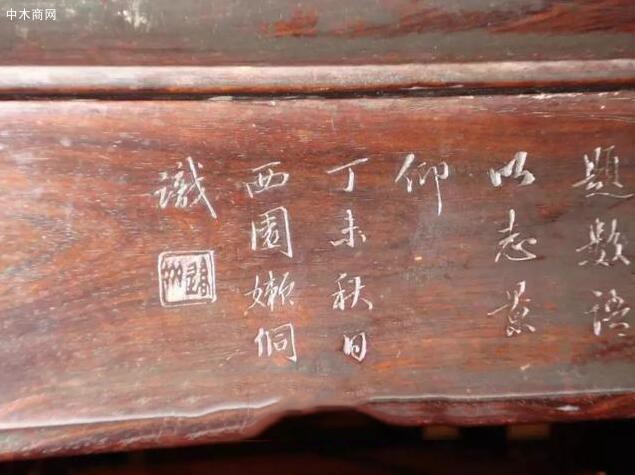 中木商网
題數語
以志景
仰
丁未秋日
西園嬾侗
識